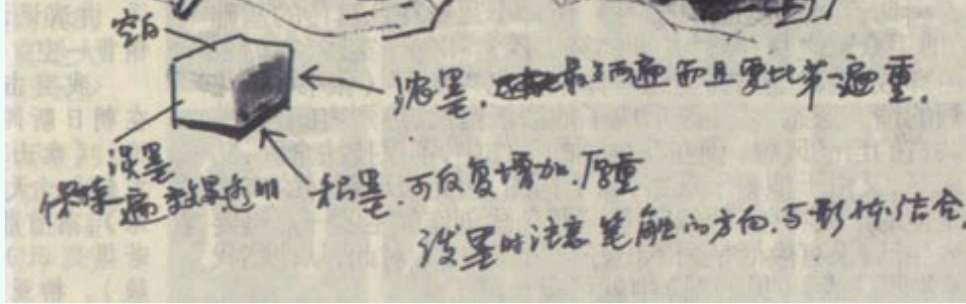 空白
浓墨.最多两遍而且要比第一遍重.
淡墨
保本一遍效果透明
积墨.可反复增加.厚重
设墨时注意笔触的方向.与形体结合.